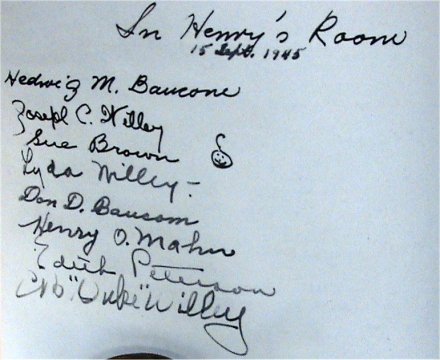 In Henry's Room
15 Sept. 1945
Hedwig M. Baucom
Joseph C. Willey
Sue Brown
Lyda Willey
Don D. Baucom
Henry O. Mahn
Edith Peterson
"Duke" Willey